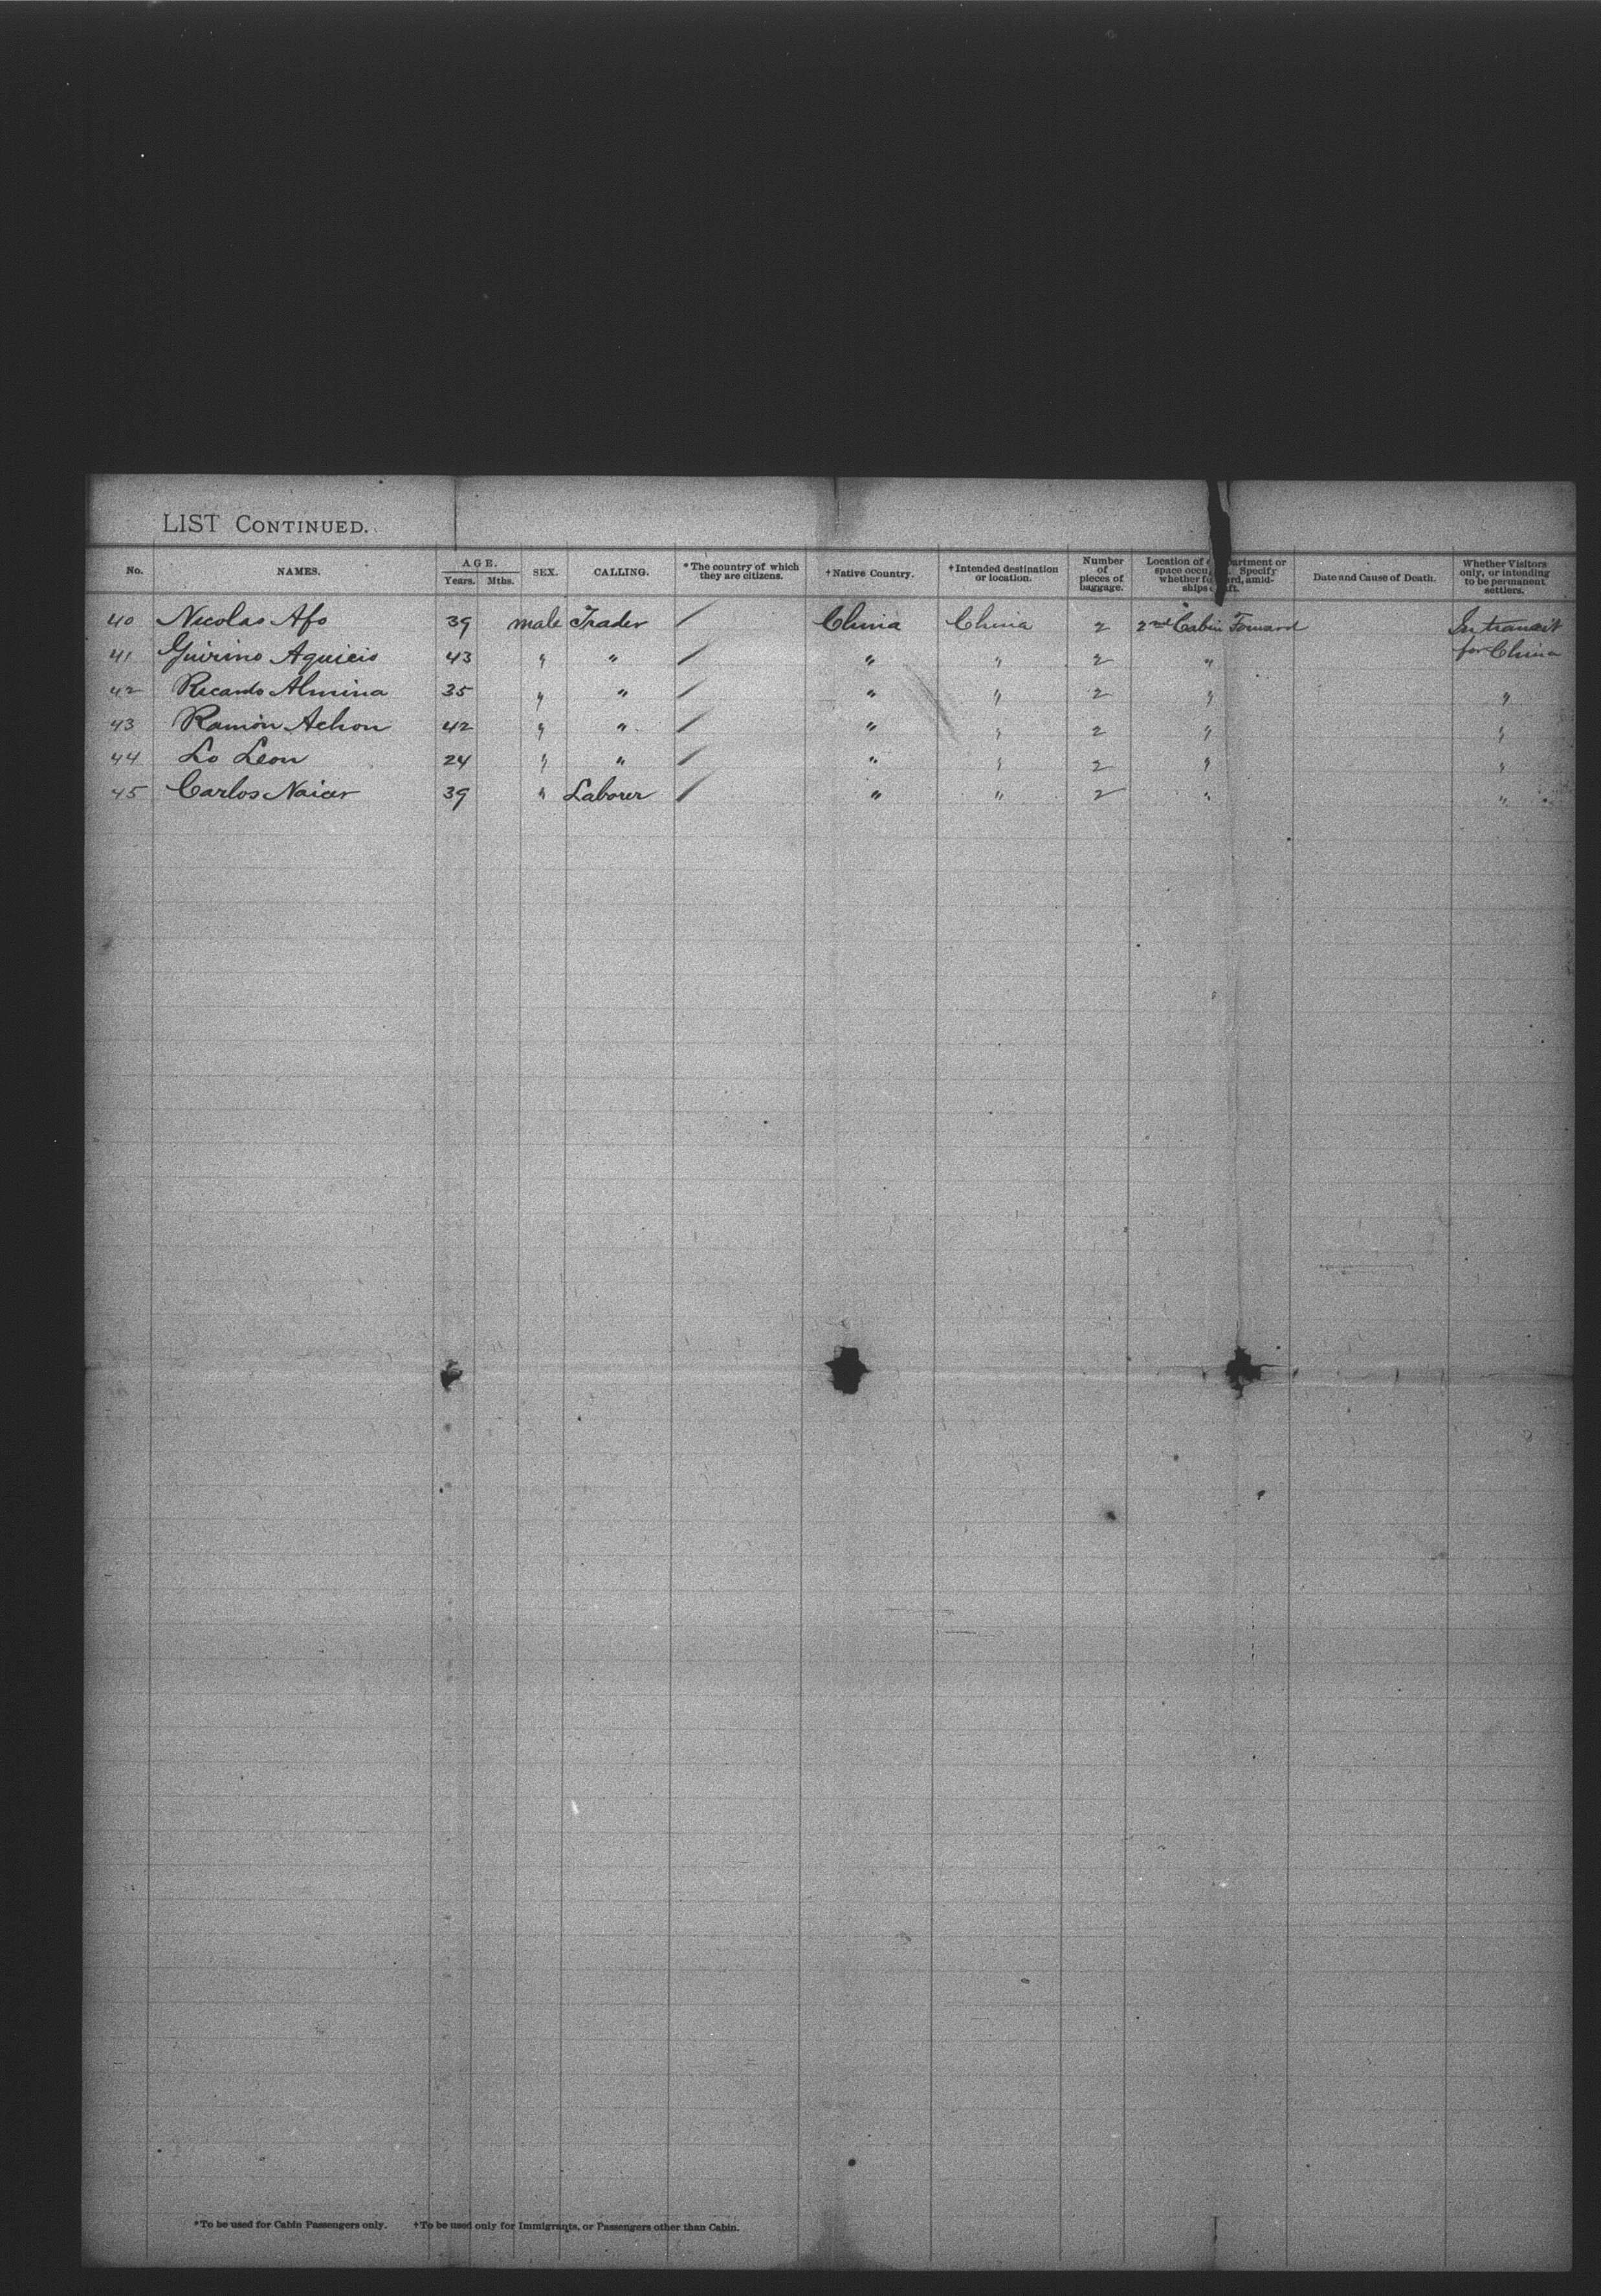 LIST CONTINUED.
No. NAMES. AGE. Years. Mths. SEX. CALLING. *The country of which they are citizens. †Native Country. †Intended destination or location. Number of pieces of baggage. Location of space Specify whether amidships Date and Cause of Death. Whether Visitors only, or intending to be permanent settlers.
40 Nicolas Afo 39 male Trader / China China 2 2nd Cabin Forward In transit for China
41 43 " " / " " 2 "
42 Ricardo Almina 35 " " / " " 2 " "
43 Ramon Achon 42 " " / " " 2 " "
44 Lo Leon 24 " " / " " 2 " "
45 Carlos 39 " Laborer / " " 2 " "
*To be used for Cabin Passengers only. †To be used only for Immigrants, or Passengers other than Cabin.